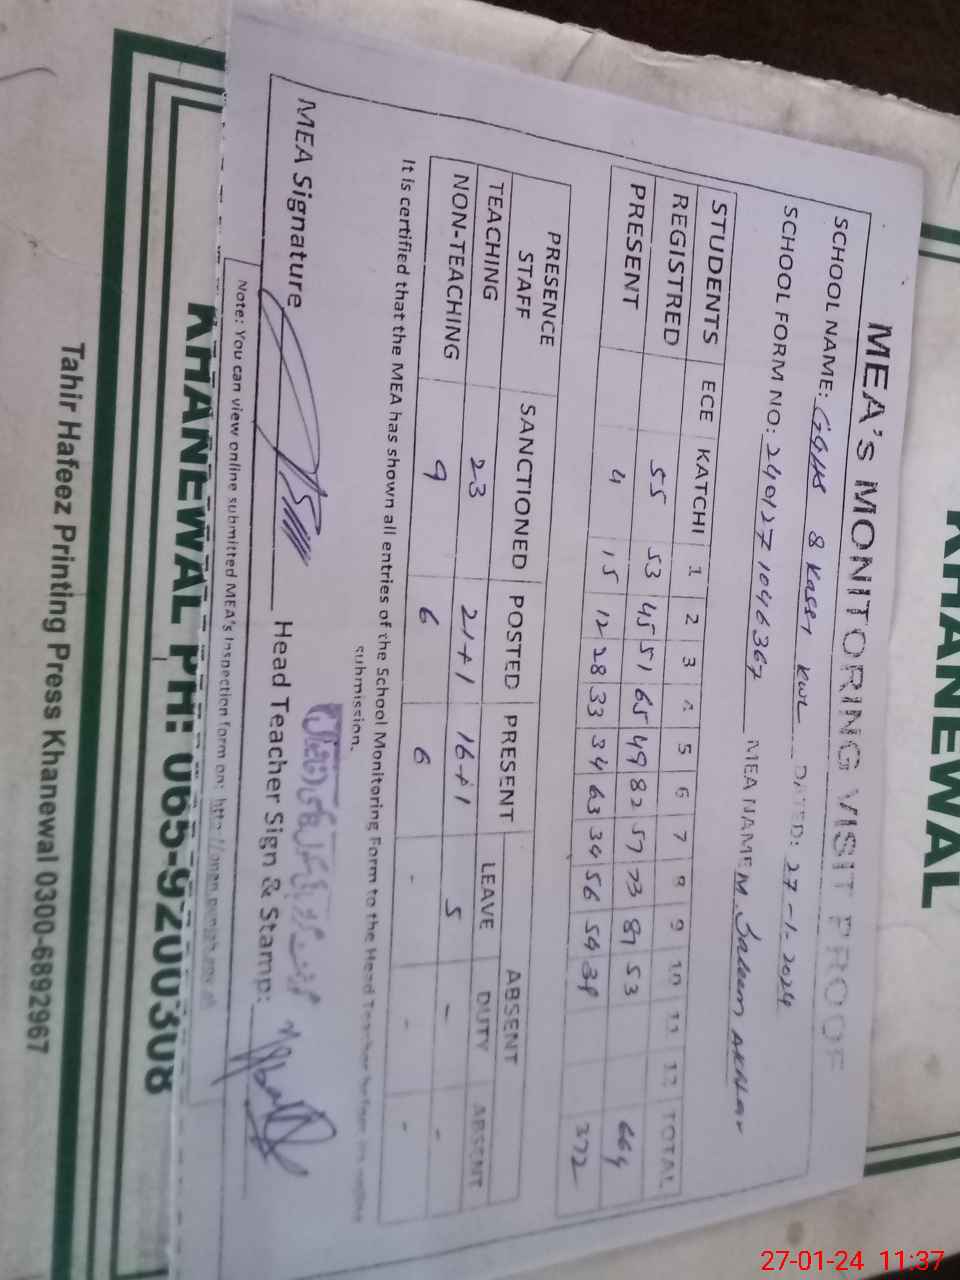 KHANEWAL
MEA'S MONITORING VISIT PROOF
SCHOOL NAME: GGHS 8 Kassi KWL DATED: 27-1-2024
SCHOOL FORM NO: 240127 1046367 MEA NAME M. Saleem AKhtar
STUDENTS ECE KATCHI 1 2 3 4 5 6 7 8 9 10 11 12 TOTAL
REGISTRED 55 53 45 51 65 49 82 57 73 81 53 664
PRESENT 4 15 12 28 33 34 63 34 56 54 39 372
PRESENCE STAFF SANCTIONED POSTED PRESENT ABSENT
LEAVE DUTY ABSENT
TEACHING 23 21+1 16+1 5 - -
NON-TEACHING 9 6 6 - - -
It is certified that the MEA has shown all entries of the School Monitoring Form to the Head Teacher before its online
submission.
MEA Signature Head Teacher Sign & Stamp:
Note: You can view online submitted MEA's Inspection form on:
KHANEWAL PH: 065-9200308
Tahir Hafeez Printing Press Khanewal 0300-6892967
27-01-24 11:37